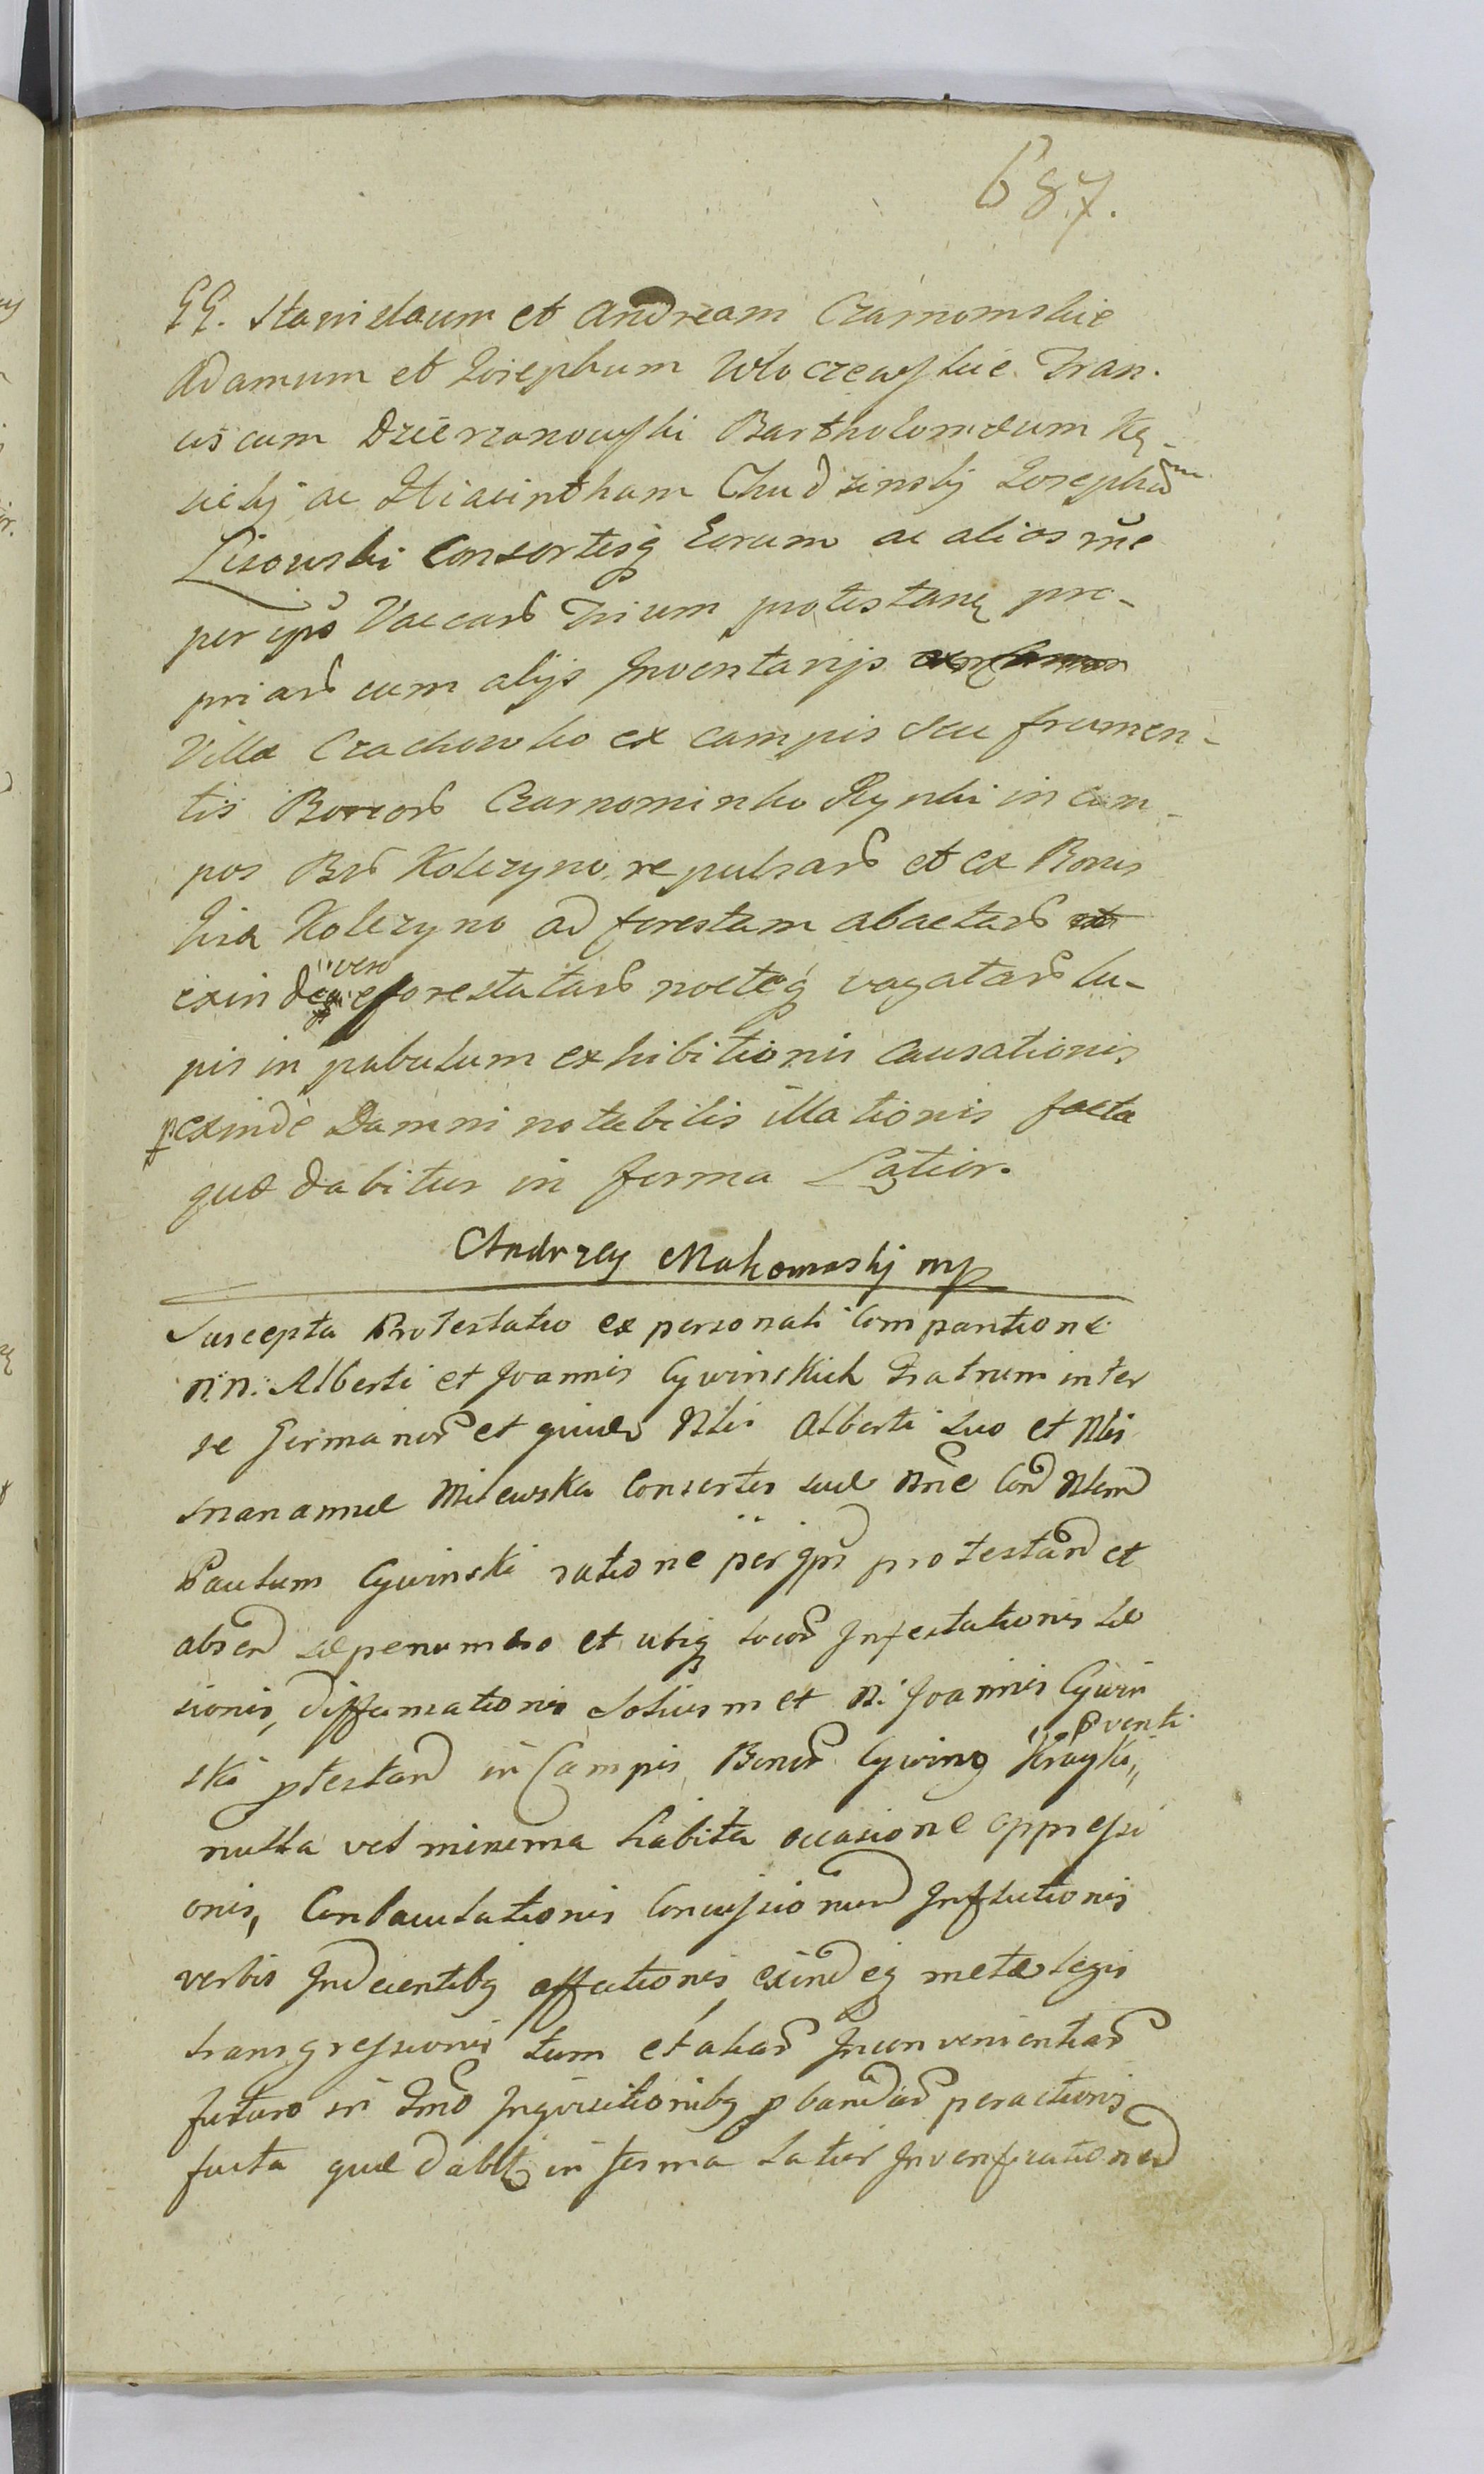 687.
GG. Stanislaum et Andream Czarnomskie
Adamum et Josephum Włoczewskie Fran.
ciscum Dzierzanowski Bartholomæum Kę-
sickj ac Hiacintham Chudzinskj Josephum
Lisowski Consortesq Eorum ac alios rñe
per ipõ Vaccarũ Trium protestanę pro-
priarũ cum alijs Inventarijs
Villa Czachowko ex campis seu frumen-
tis Bonorũ Czarnominko Rynki in cam-
pos Brũ Kolczyno repulsarũ et ex Bonis
hisce Kolczyno ad forestam abactarũ
exinde vero eforestatarũ nocteq vagatarũ lu-
pis in pabulum exhibitionis causationis
exinde Damni notabilis illationis facta
quæ dabitur in forma Latior.
Andrzey Makomaskj mp
Suscepta Protestatio ex personali Comparitione
N.N. Alberti et Joannis Cywinskich Fratrum inter
se Germanorũ et quidẽ Nlis Alberti suo et Nlis
Marannæ Milewska Consortis suæ nñe Cõ Nlem
Paulum Cywinski ratione per ipõ protestanđ et
absenđ sæpenumero et ubiq locorũ Infestationis Læ
sionis, diffamationis Solius met N. Joannis Cywin
ski ptestanđ in Campis Bonorũ Cywino Krayki, pventi
nulla vel minima habita occasione oppressi
onis, Conbaculationis Concussionum Inflictionis
verbis Indecentibq affectionis exindeq metæ legis
transgressionis tum et aliarũ Inconvenientiarũ
futuro in Tmõ Inquisitionibq pbandarũ peractionis
facta quæ dabitr in forma Latior